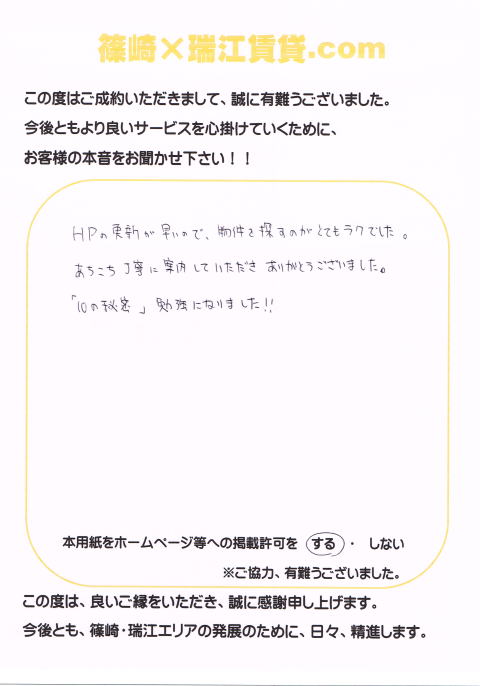 篠崎×瑞江賃貸.com
この度はご成約いただきまして、誠に有難うございました。
今後ともより良いサービスを心掛けていくために、
お客様の本音をお聞かせ下さい！！
HPの更新が早いので、物件を探すのがとてもラクでした。
あちこち丁寧に案内していただきありがとうございました。
「10の秘密」勉強になりました!!
本用紙をホームページ等への掲載許可を する ・ しない
※ご協力、有難うございました。
この度は、良いご縁をいただき、誠に感謝申し上げます。
今後とも、篠崎・瑞江エリアの発展のために、日々、精進します。